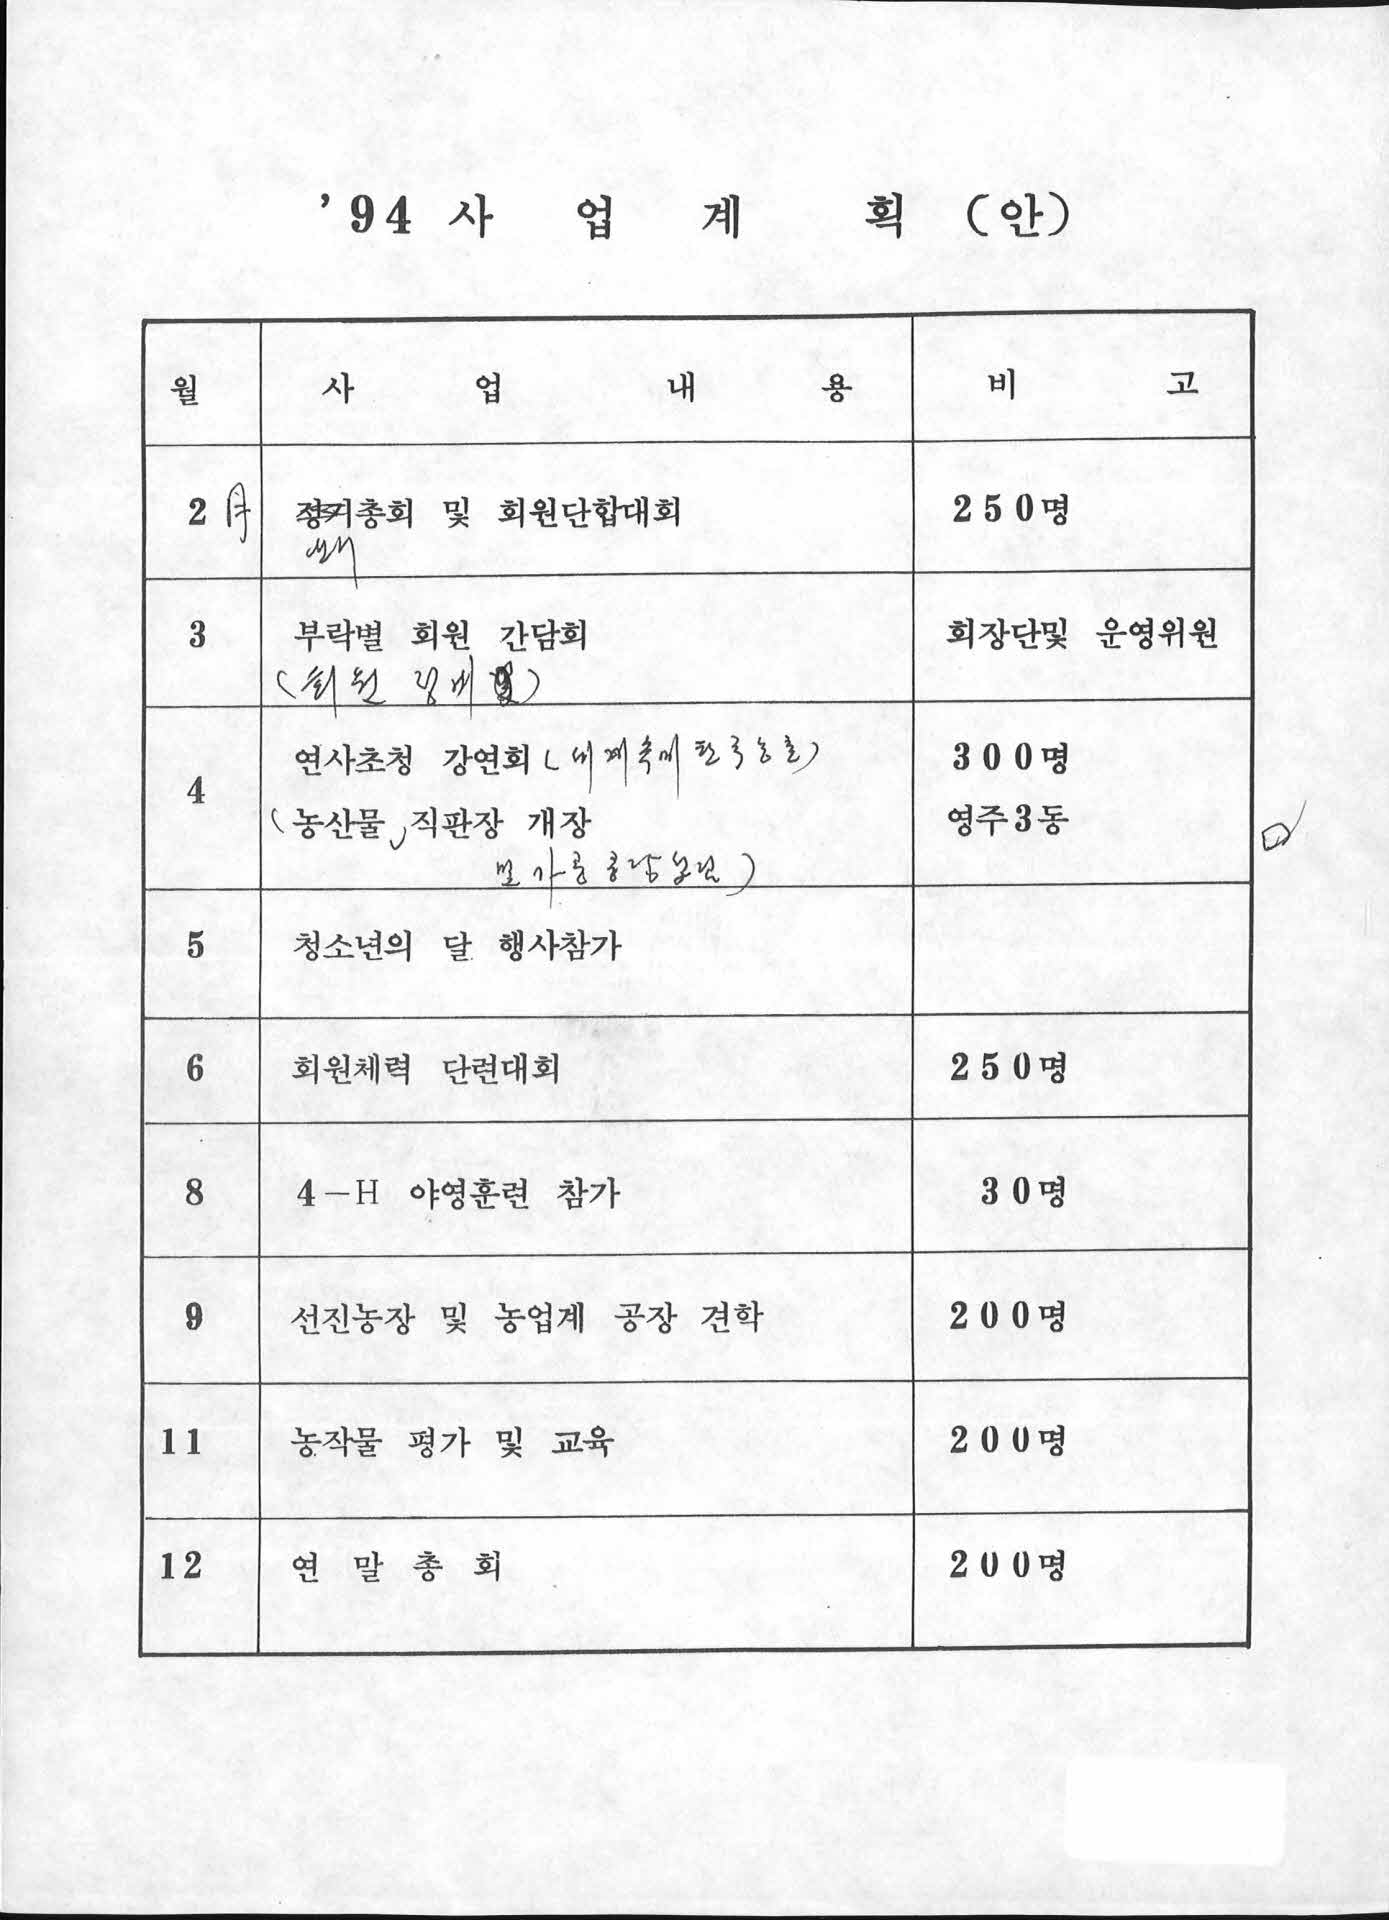 ’94 사 업 계 획 (안)
월 사 업 내 용 비 고
2 月 정기총회 및 회원단합대회 250명
3 부락별 회원 간담회 회장단및 운영위원
(회원 정비 및)
4 연사초청 강연회 (세계속에 한국농촌) 300명
(농산물, 직판장 개장 영주3동
및 가공공장 )
5 청소년의 달 행사참가
6 회원체력 단련대회 250명
8 4-H 야영훈련 참가 30명
9 선진농장 및 농업계 공장 견학 200명
11 농작물 평가 및 교육 200명
12 연 말 총 회 200명